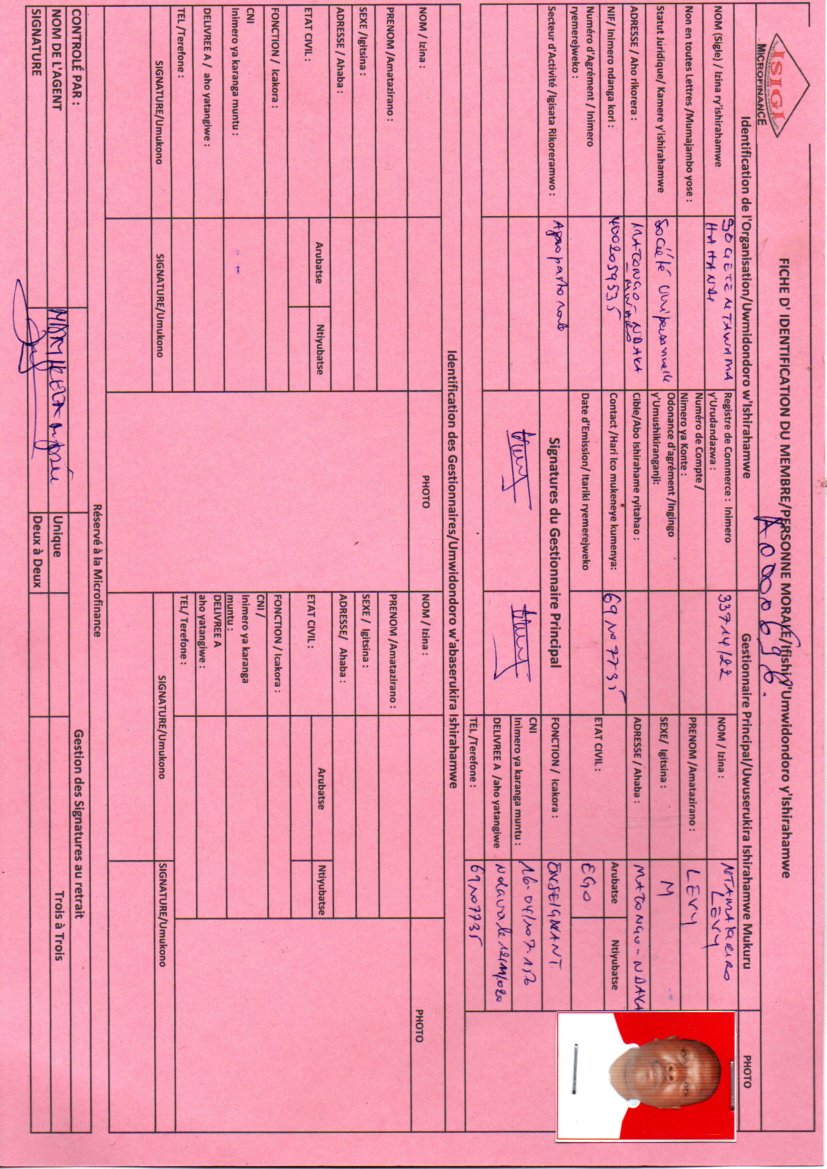 ISIGI
MICROFINANCE
FICHE D' IDENTIFICATION DU MEMBRE/PERSONNE MORALE/Ifishi y'Umwidondoro y'Ishirahamwe
A0000696.
Identification de l'Organisation/Uwmidondoro w'Ishirahamwe
Gestionnaire Principal/Uwuserukira Ishirahamwe Mukuru
PHOTO
NOM (Sigle) / Izina ry'ishirahamwe
SOCIETE NTAWAMA
HAHANDI
Registre de Commerce : Inimero
y'Urudandazwa :
33714/22
NOM / Izina :
LEVY
Non en toutes Lettres /Mumajambo yose :
Numéro de Compte /
Nimero ya Konte :
PRENOM /Amatazirano :
LEVY
Statut Juridique/ Kamere y'ishirahamwe
Société Unipersonnelle
Odonance d'agrément /Ingingo
y'Umushikiranganji:
SEXE/ Igitsina :
M
ADRESSE / Aho rikorera :
MATONGO - NDAVA
- MWARO
Cible/Abo Ishirahame ryitahao :
ADRESSE / Ahaba :
MATONGO - NDAVA
NIF/ Inimero ndanga kori :
4002059535
Contact /Hari Ico mukeneye kumenya:
69107735
ETAT CIVIL :
Arubatse
Ntiyubatse
EGO
Numéro d'Agrément / Inimero
ryemerejweko :
Date d'Emission/ Itariki ryemerejweko
Secteur d'Activité /Igisata Rikoreramwo :
Agropastorale
Signatures du Gestionnaire Principal
FONCTION / Icakora :
ENSEIGNANT
CNI
Inimero ya karanga muntu :
DELIVREE A /aho yatangiwe
Ndava le
TEL /Terefone :
69107735
Identification des Gestionnaires/Umwidondoro w'abaserukira Ishirahamwe
NOM / Izina :
PHOTO
NOM / Izina :
PHOTO
PRENOM /Amatazirano :
PRENOM /Amatazirano :
SEXE /Igitsina :
SEXE / Igitsina :
ADRESSE / Ahaba :
ADRESSE/ Ahaba :
ETAT CIVIL :
Arubatse
Ntiyubatse
ETAT CIVIL :
Arubatse
Ntiyubatse
FONCTION / Icakora :
FONCTION / Icakora :
CNI
Inimero ya karanga muntu :
CNI /
Inimero ya karanga
muntu :
DELIVREE A / aho yatangiwe :
DELIVREE A
aho yatangiwe :
TEL /Terefone :
TEL/ Terefone :
SIGNATURE/Umukono
SIGNATURE/Umukono
SIGNATURE/Umukono
SIGNATURE/Umukono
Réservé à la Microfinance
CONTROLÉ PAR :
Gestion des Signatures au retrait
NOM DE L'AGENT
Unique
Trois à Trois
SIGNATURE
Deux à Deux